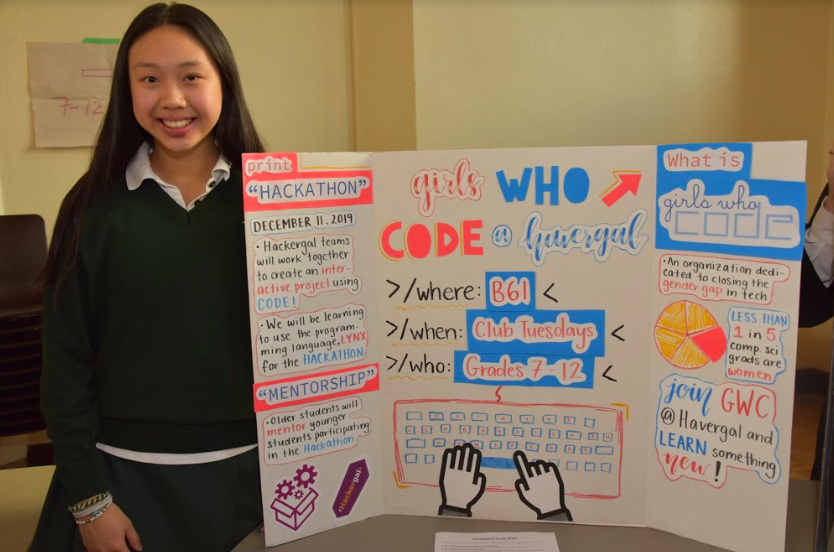 7-12
print
"HACKATHON"
DECEMBER 11, 2019
· Hackergal teams
will work together
to create an inter-
active project using
CODE!
· We will be learning
to use the program-
ming language, LYNX
for the HACKATHON
"MENTORSHIP"
· Older students will
mentor younger
students participating
in the Hackathon
<Hackergal>
girls WHO
CODE @ havergal
>/where: B61 <
>/when: Club Tuesdays <
>/who: Grades 7-12 <
What is
girls who
CODE
· An organization dedi-
cated to closing the
gender gap in tech
LESS THAN
1 in 5
comp. sci
grads are
women
join GWC
@ Havergal and
LEARN something
new!